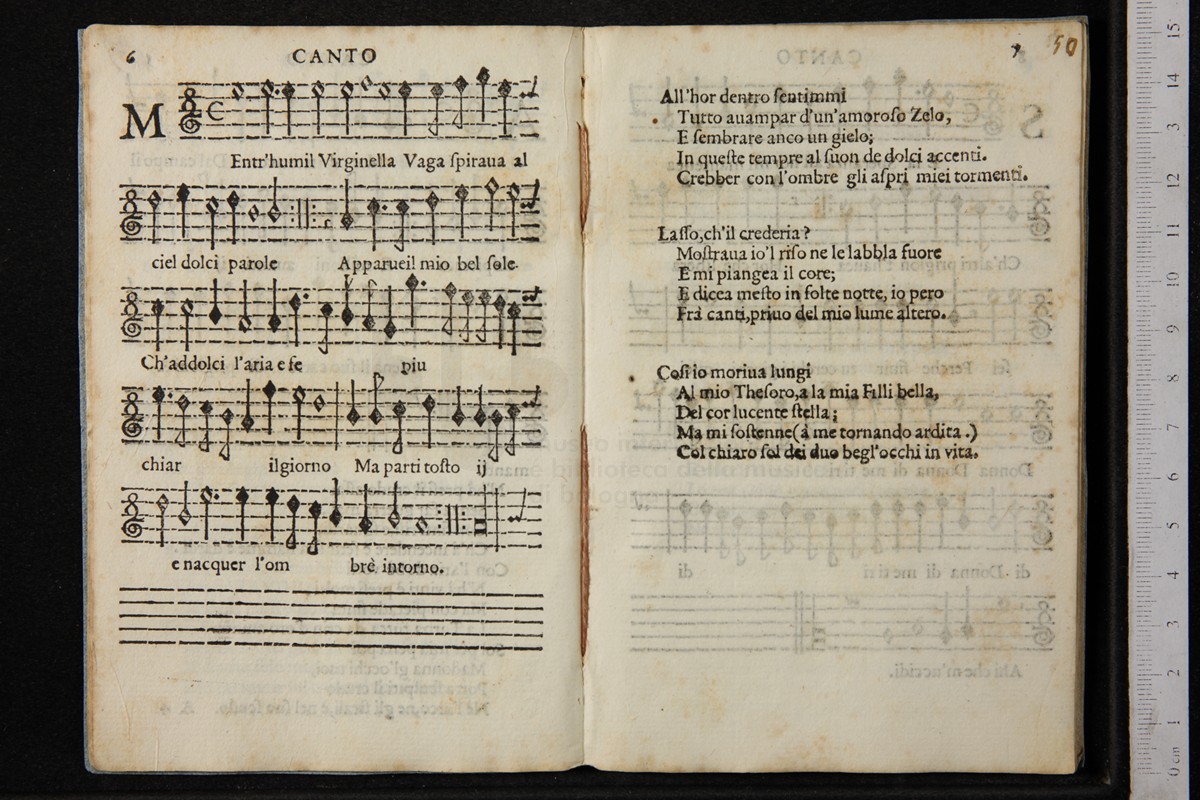 6
CANTO
M
Entr'humil Virginella Vaga ſpiraua al
ciel dolci parole Apparueil mio bel ſole.
Ch'addolci l'aria e fe piu
chiar ilgiorno Ma parti toſto ij
e nacquer l'om bre intorno.
7
50
All'hor dentro ſentimmi
Tutto auampar d'un'amoroſo Zelo,
E ſembrare anco un gielo;
In queſte tempre al ſuon de dolci accenti.
Crebber con l'ombre gli aſpri miei tormenti.
Laſſo,ch'il crederia?
Moſtraua io'l riſo ne le labbla fuore
E mi piangea il core;
E dicea meſto in folte notte, io pero
Frà canti,priuo del mio lume altero.
Coſi io moriua lungi
Al mio Theſoro,a la mia Filli bella,
Del cor lucente ſtella;
Ma mi ſoſtenne(à me tornando ardita .)
Col chiaro ſol dei duo begl'occhi in vita.